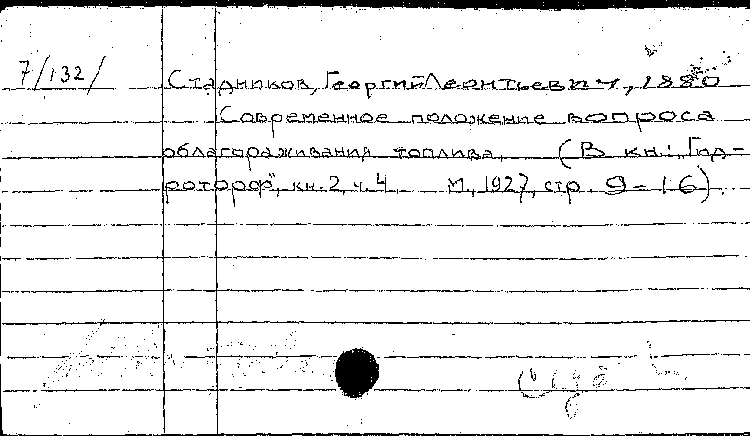 7/132/
Стадников, Георгий Леонтьевич, 1880
Современное положение вопроса
облагораживания топлива. (В кн.: „Гид-
роторф", кн. 2, ч. 4. М., 1927, стр. 9-16).